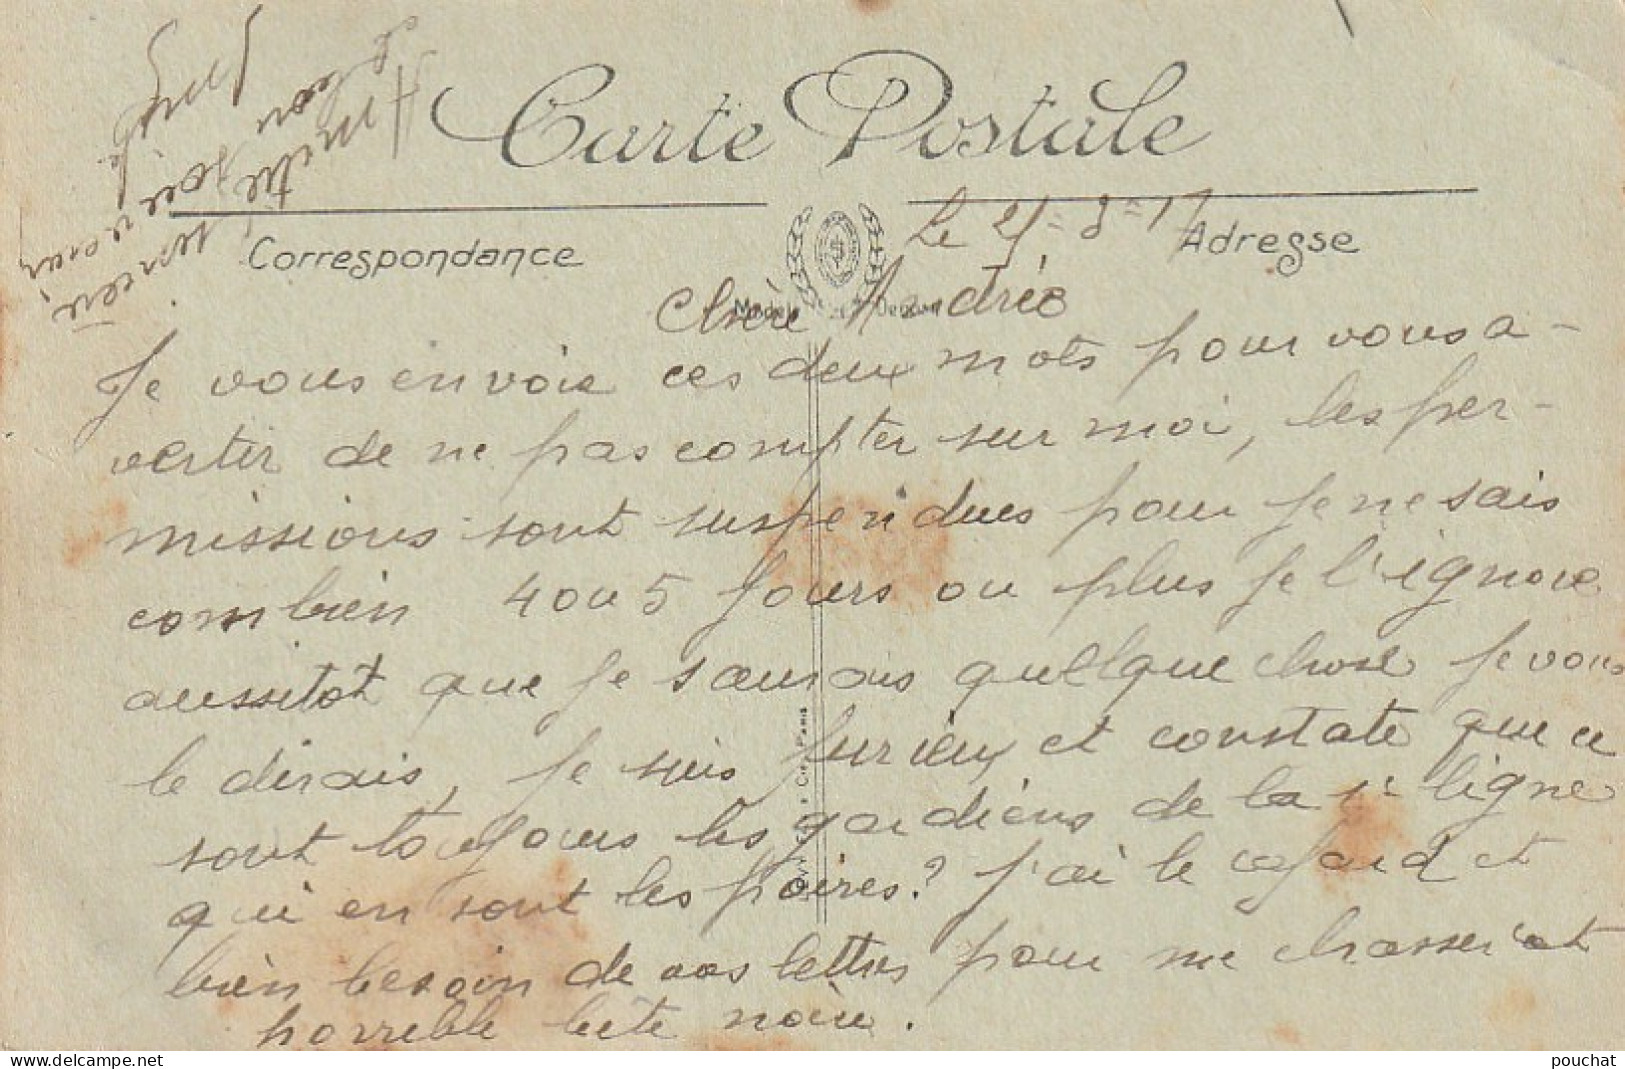 Carte Postale
Correspondance
Adresse
Le 21-3-17
Chère Andrée
Je vous envoie ces deux mots pour vous a-
vertir de ne pas compter sur moi, les per-
missions sont suspendues pour je ne sais
combien 4 ou 5 jours ou plus je l'ignore
aussitot que je saurais quelque chose je vous
le dirais, je suis furieux et constate que ce
sont toujours les gardiens de la 1e ligne
qui en sont les poires? j'ai le cafard et
bien besoin de vos lettres pour me chasser cet
horrible bête noire.
Amitié sincère
pouchat